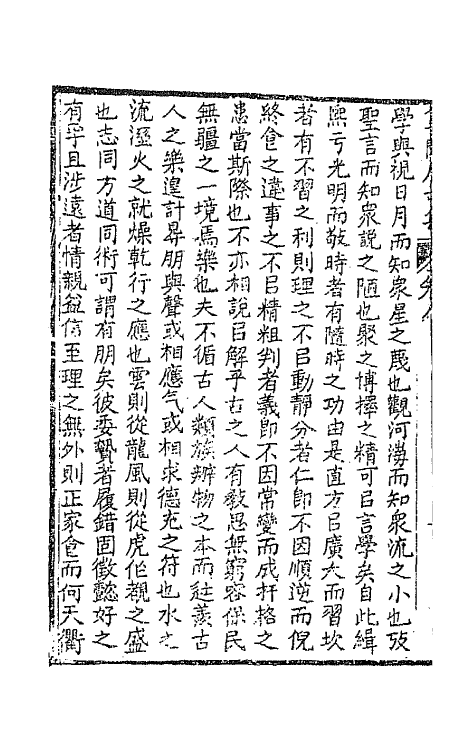 學與視日月而知衆星之蔑也觀河海而知衆流之小也攷
聖言而知衆說之陋也聚之博擇之精可㠯言學矣自此緝
熙亏光明而敬時者有隨時之功由是直方㠯廣大而習坎
者有不習之利則理之不㠯動靜分者仁卽不因順逆而倪
終食之違事之不㠯精粗判者義卽不因常變而成扞格之
患當斯際也不亦相說㠯解乎古之人有敎思無窮容保民
無疆之一境焉樂也夫不循古人類族辨物之本而徒羨古
人之樂遑計昇朋與聲或相應气或相求德充之符也水之
流溼火之就燥乾行之應也雲則從龍風則從虎作親之盛
也志同方道同術可謂有朋矣彼委贄者履錯固徵懿好之
有孚且涉遠者情親益信至理之無外則正家食而何天衢